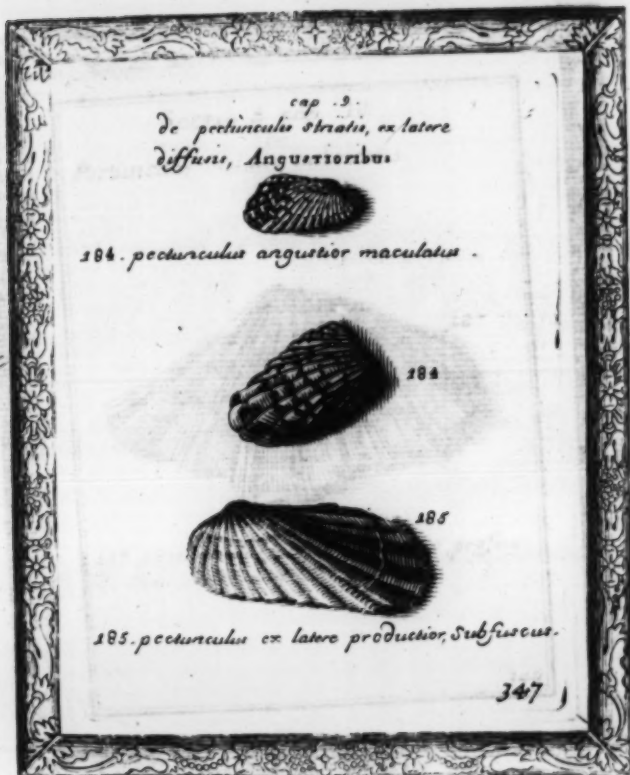 cap .9.
de pectunculis striatis, ex latere
diffusis, Angustioribus
184. pectunculus angustior maculatus.
184
185
185. pectunculus ex latere productior, subfuscus.
347